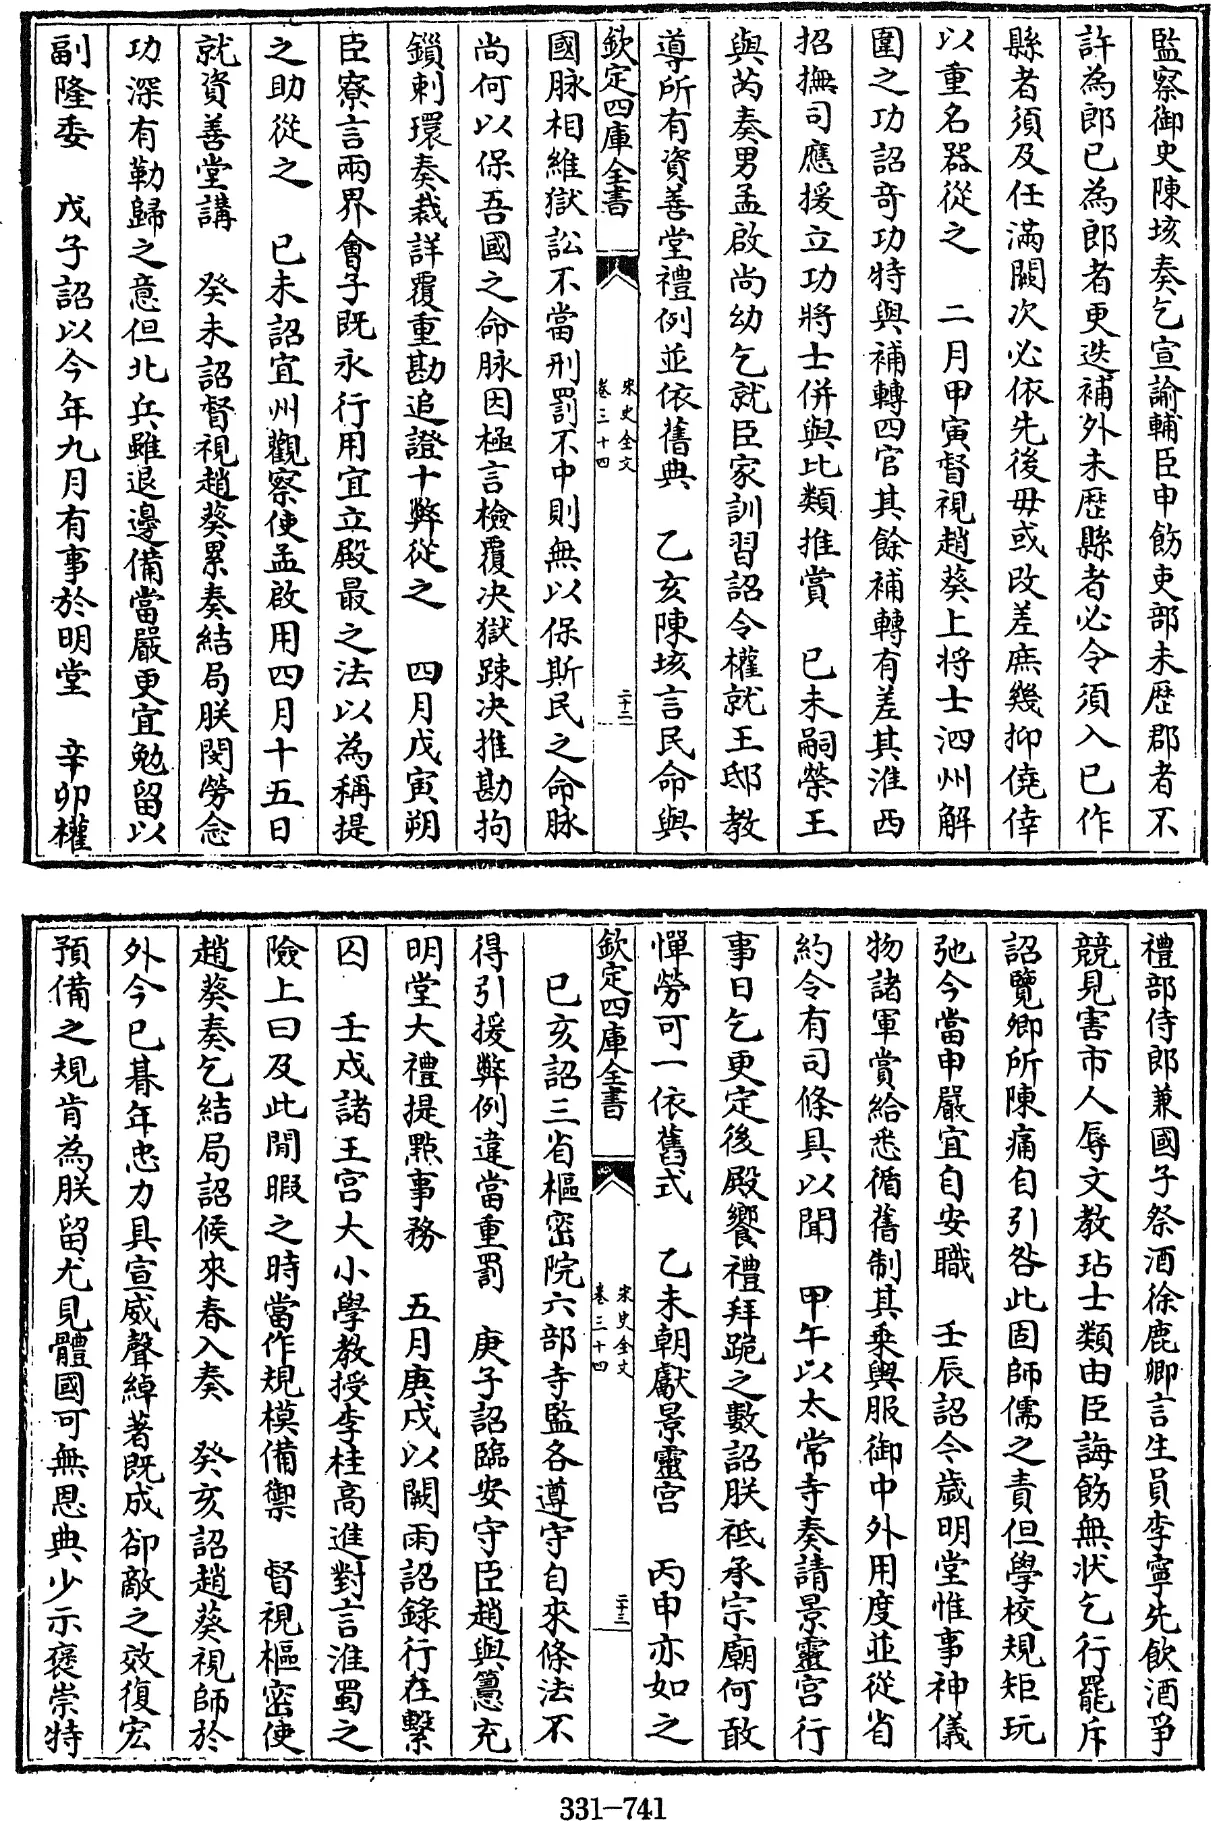 監察御史陳垓奏乞宣諭輔臣申飭吏部未歷郡者不
許為郎已為郎者更迭補外未歷縣者必令須入已作
縣者須及任滿闕次必依先後毋或改差庶幾抑僥倖
以重名器從之　二月甲寅督視趙葵上將士泗州解
圍之功詔奇功特與補轉四官其餘補轉有差其淮西
招撫司應援立功將士併與比類推賞　已未嗣榮王
與芮奏男孟啟尚幼乞就臣家訓習詔令權就王邸教
導所有資善堂禮例並依舊典　乙亥陳垓言民命與
欽定四庫全書　宋史全文卷三十四　二十二
國脉相維獄訟不當刑罰不中則無以保斯民之命脉
尚何以保吾國之命脉因極言檢覆决獄踈决推勘拘
鎖刺環奏裁詳覆重勘追證十弊從之　四月戊寅朔
臣寮言兩界會子既永行用宜立殿最之法以為稱提
之助從之　已未詔宜州觀察使孟啟用四月十五日
就資善堂講　癸未詔督視趙葵累奏結局朕閔勞念
功深有勒歸之意但北兵雖退邊備當嚴更宜勉留以
副隆委　戊子詔以今年九月有事於明堂　辛卯權
禮部侍郎兼國子祭酒徐鹿卿言生員李寧先飲酒爭
競見害市人辱文教玷士類由臣誨飭無狀乞行罷斥
詔覽卿所陳痛自引咎此固師儒之責但學校規矩玩
弛今當申嚴宜自安職　壬辰詔今歲明堂惟事神儀
物諸軍賞給悉循舊制其乘輿服御中外用度並從省
約令有司條具以聞　甲午以太常寺奏請景靈宫行
事日乞更定後殿饗禮拜跪之數詔朕祗承宗廟何敢
憚勞可一依舊式　乙未朝獻景靈宫　丙申亦如之
欽定四庫全書　宋史全文卷三十四　二十三
已亥詔三省樞密院六部寺監各遵守自來條法不
得引援弊例違當重罰　庚子詔臨安守臣趙與𥲅充
明堂大禮提點事務　五月庚戌以闕雨詔錄行在繫
囚　壬戌諸王宫大小學教授李桂高進對言淮蜀之
險上曰及此閒暇之時當作規模備禦　督視樞密使
趙葵奏乞結局詔候來春入奏　癸亥詔趙葵視師於
外今已朞年忠力具宣威聲綽著既成卻敵之效復宏
預備之規肯為朕留尤見體國可無恩典少示褒崇特
331-741